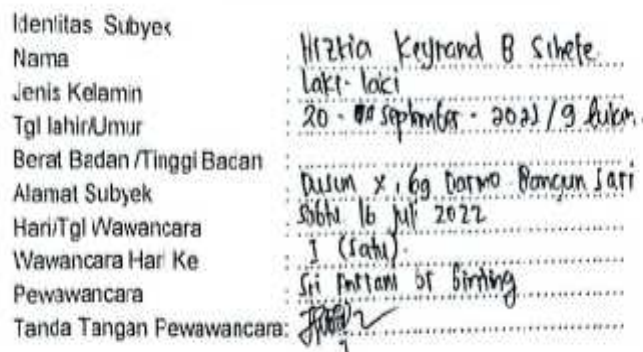 Identitas Subyek
Nama : Hizkia Keyrand B Sihete
Jenis Kelamin : Laki-laki
Tgl lahir/Umur : 20 - September - 2021 / 9 bulan.
Berat Badan /Tinggi Badan :
Alamat Subyek : Dusun X, 6g Darmo Bangun Sari
Hari/Tgl Wawancara : Sabtu 16 Juli 2022
Wawancara Hari Ke : I (satu).
Pewawancara : Sri br Ginting
Tanda Tangan Pewawancara: